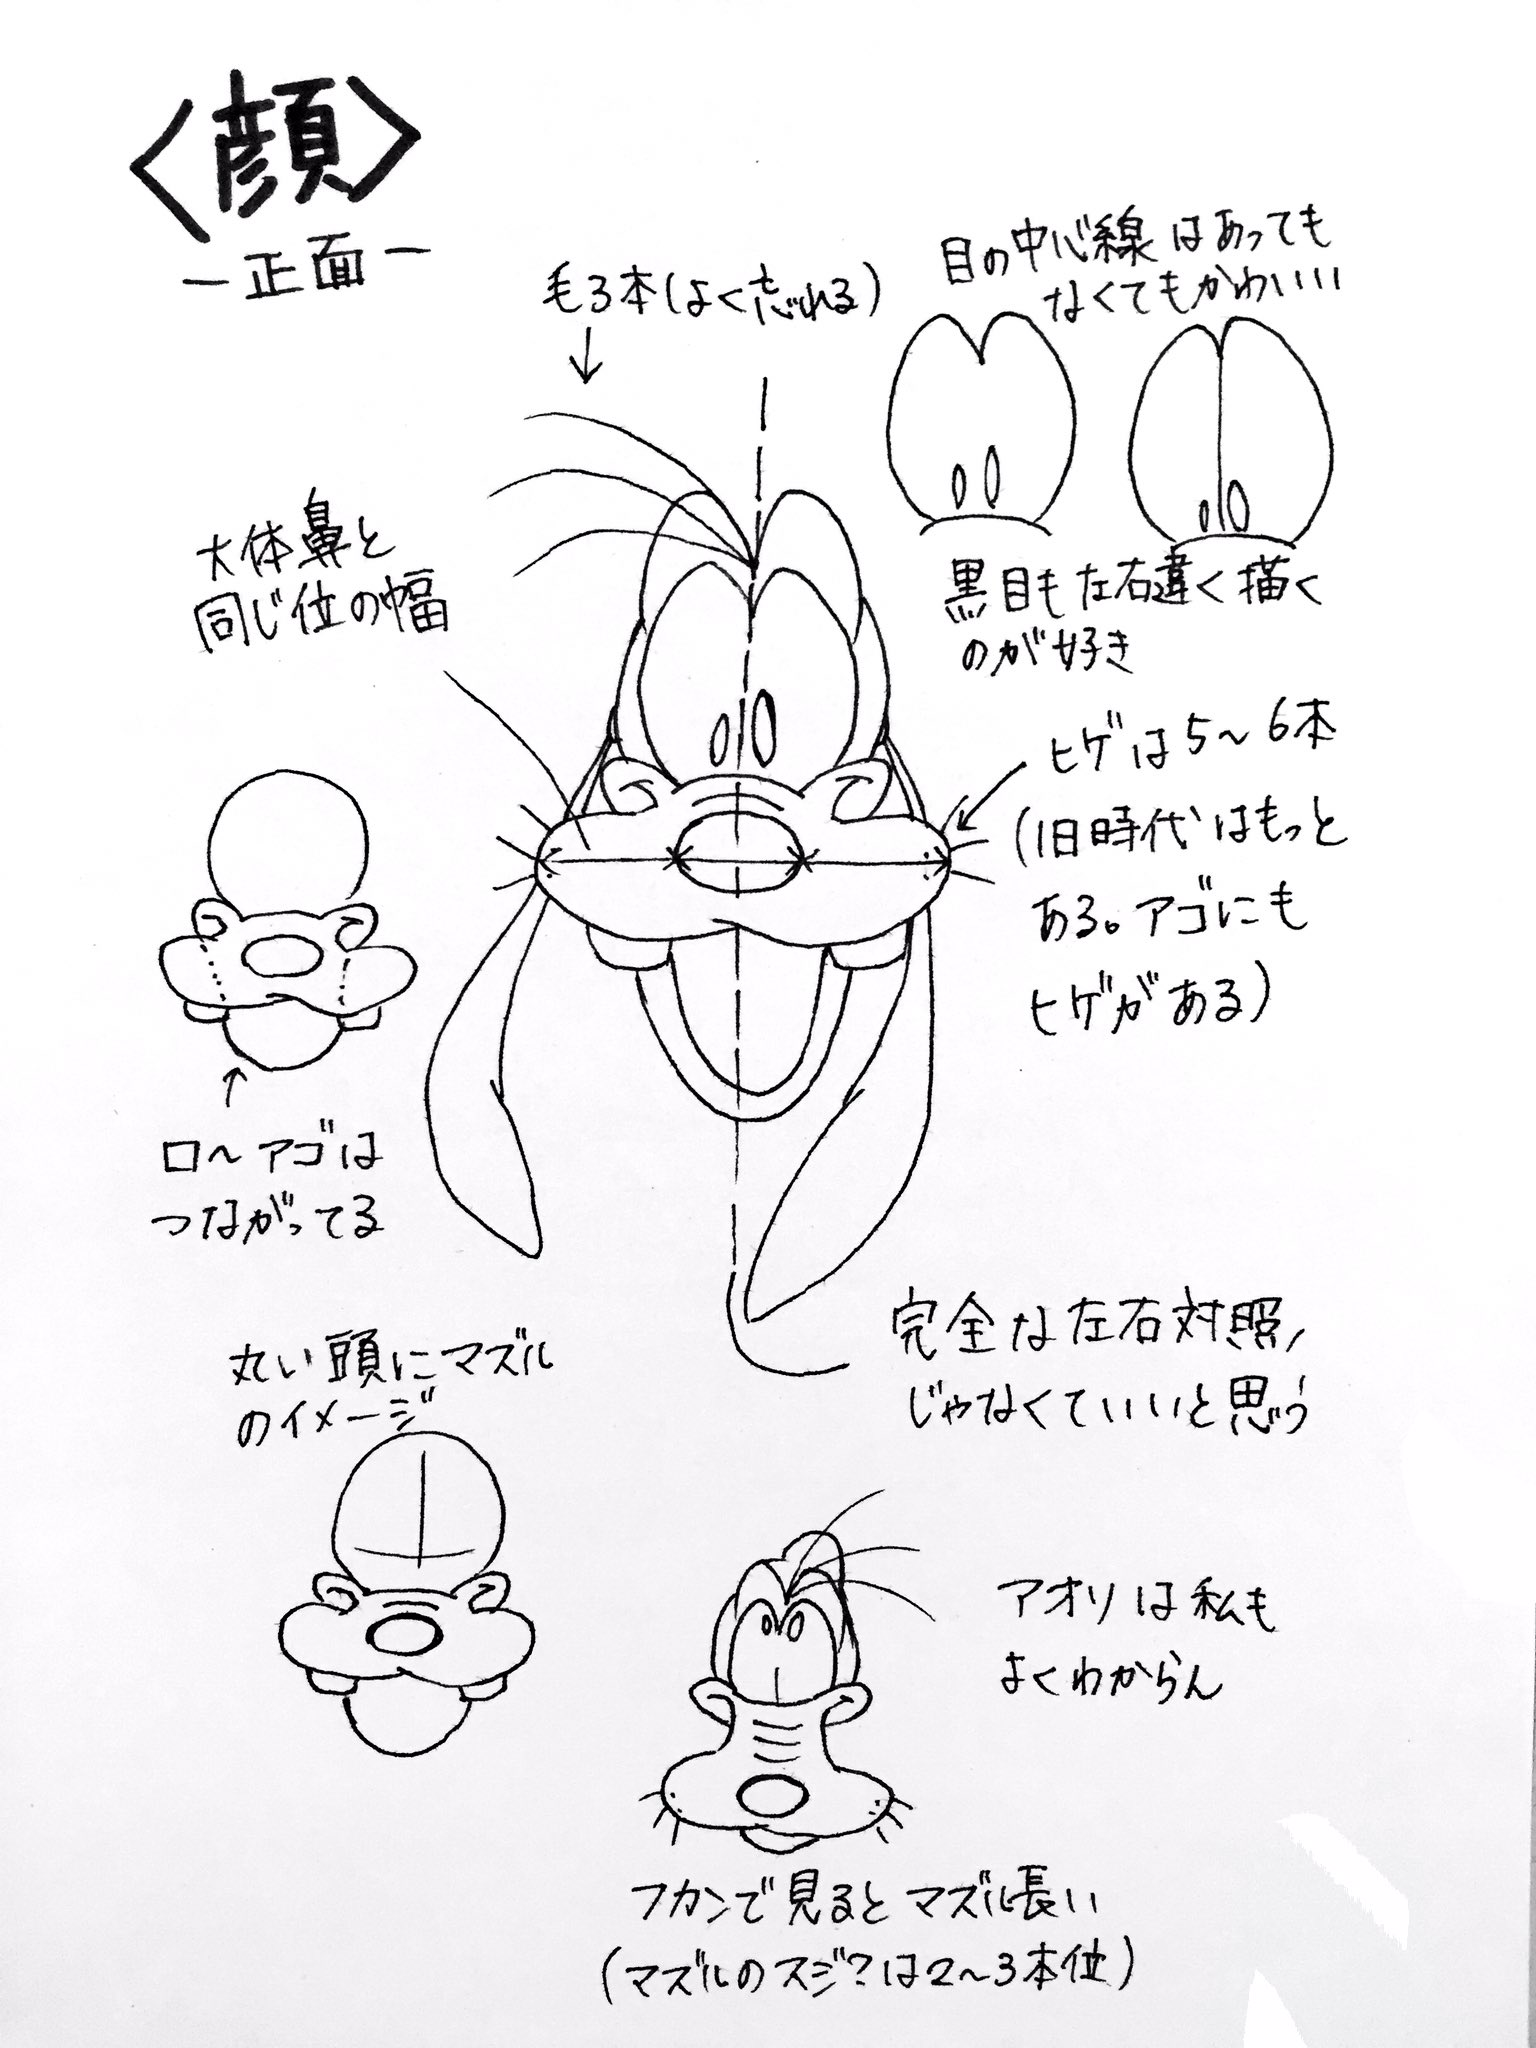 〈顔〉
－正面－
毛3本(よく忘れる)
目の中心線はあっても
なくてもかわいい
黒目も左右違く描く
のが好き
大体鼻と
同じ位の幅
ヒゲは5～6本
(旧時代はもっと
ある。アゴにも
ヒゲがある)
口～アゴは
つながってる
完全な左右対照、
じゃなくていいと思う
丸い頭にマズル
のイメージ
アオリは私も
よくわからん
フカンで見るとマズル長い
(マズルのスジ?は2～3本位)